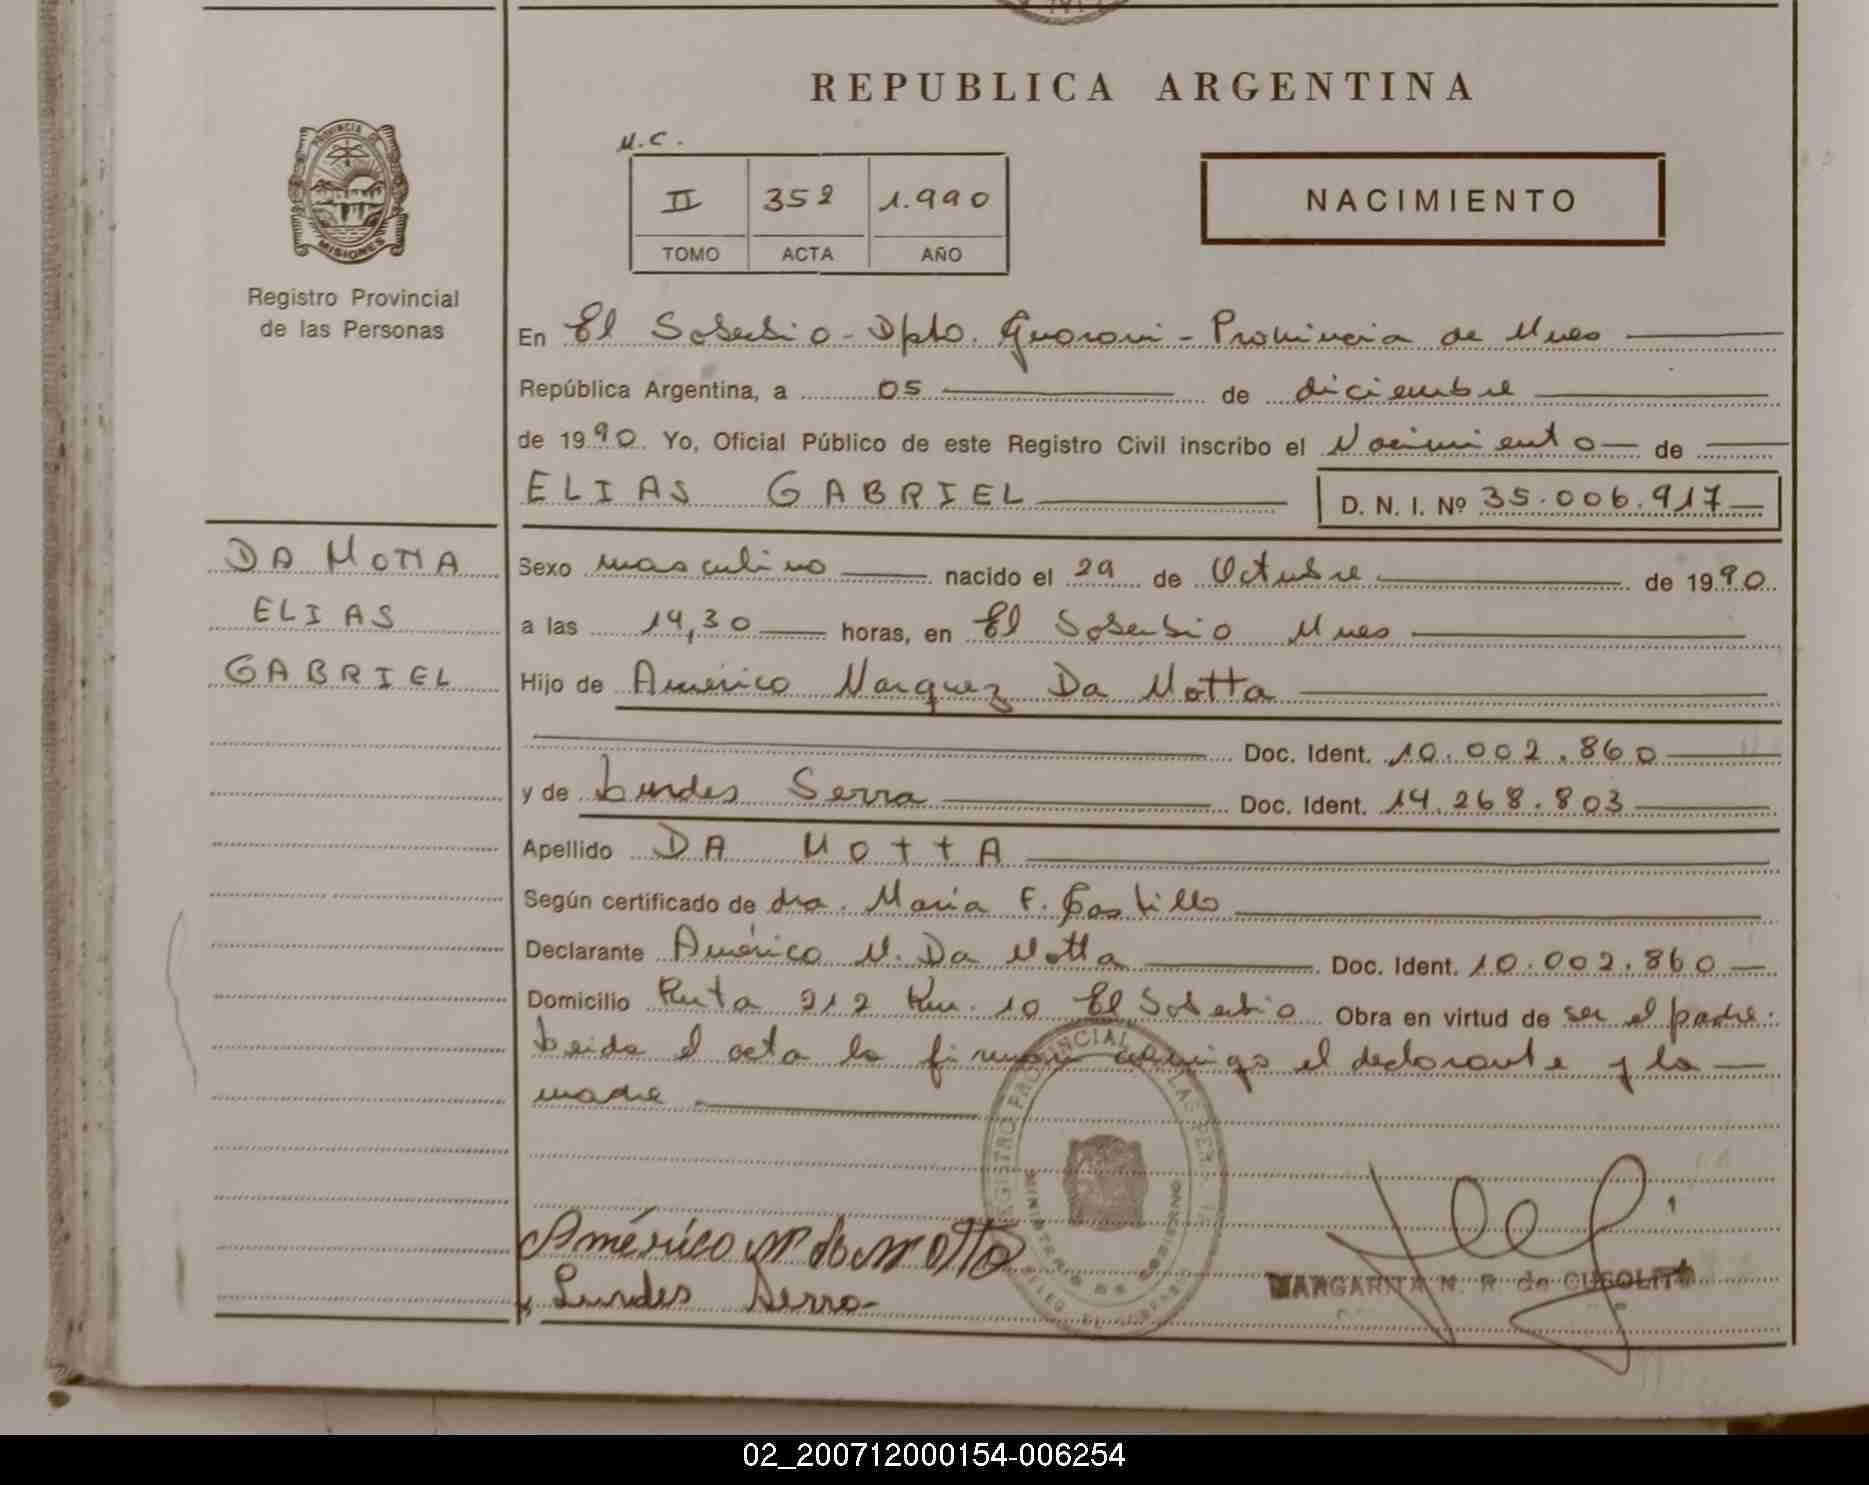 REPUBLICA ARGENTINA
PROVINCIA DE
MISIONES
Registro Provincial
de las Personas
N.C.
II 352 1.990
TOMO ACTA AÑO
NACIMIENTO
En El Soberbio - Dpto. Guarani - Provincia de Mnes
República Argentina, a 05 de diciembre
de 1990. Yo, Oficial Público de este Registro Civil inscribo el Nacimiento de
ELIAS GABRIEL D. N. I. Nº 35.006.917
DA MOTTA
ELIAS
GABRIEL
Sexo masculino nacido el 29 de Octubre de 1990.
a las 14,30 horas, en El Soberbio Mnes
Hijo de Américo Marquez Da Motta
Doc. Ident. 10.002.860
y de Lurdes Serra Doc. Ident. 14.268.803
Apellido DA MOttA
Según certificado de dra. Maria F. Castillo
Declarante Américo M. Da Motta Doc. Ident. 10.002.860
Domicilio Ruta 212 Km. 10 El Soberbio Obra en virtud de ser el padre.
Leida el acta la firman conmigo el declarante y la
madre
REGISTRO PROVINCIAL LAS PER
MINISTERIO DE GOBIERNO
Américo M da Motta
Lurdes Serra
MARGARITA N. R. de CUSOLITO
02_200712000154-006254